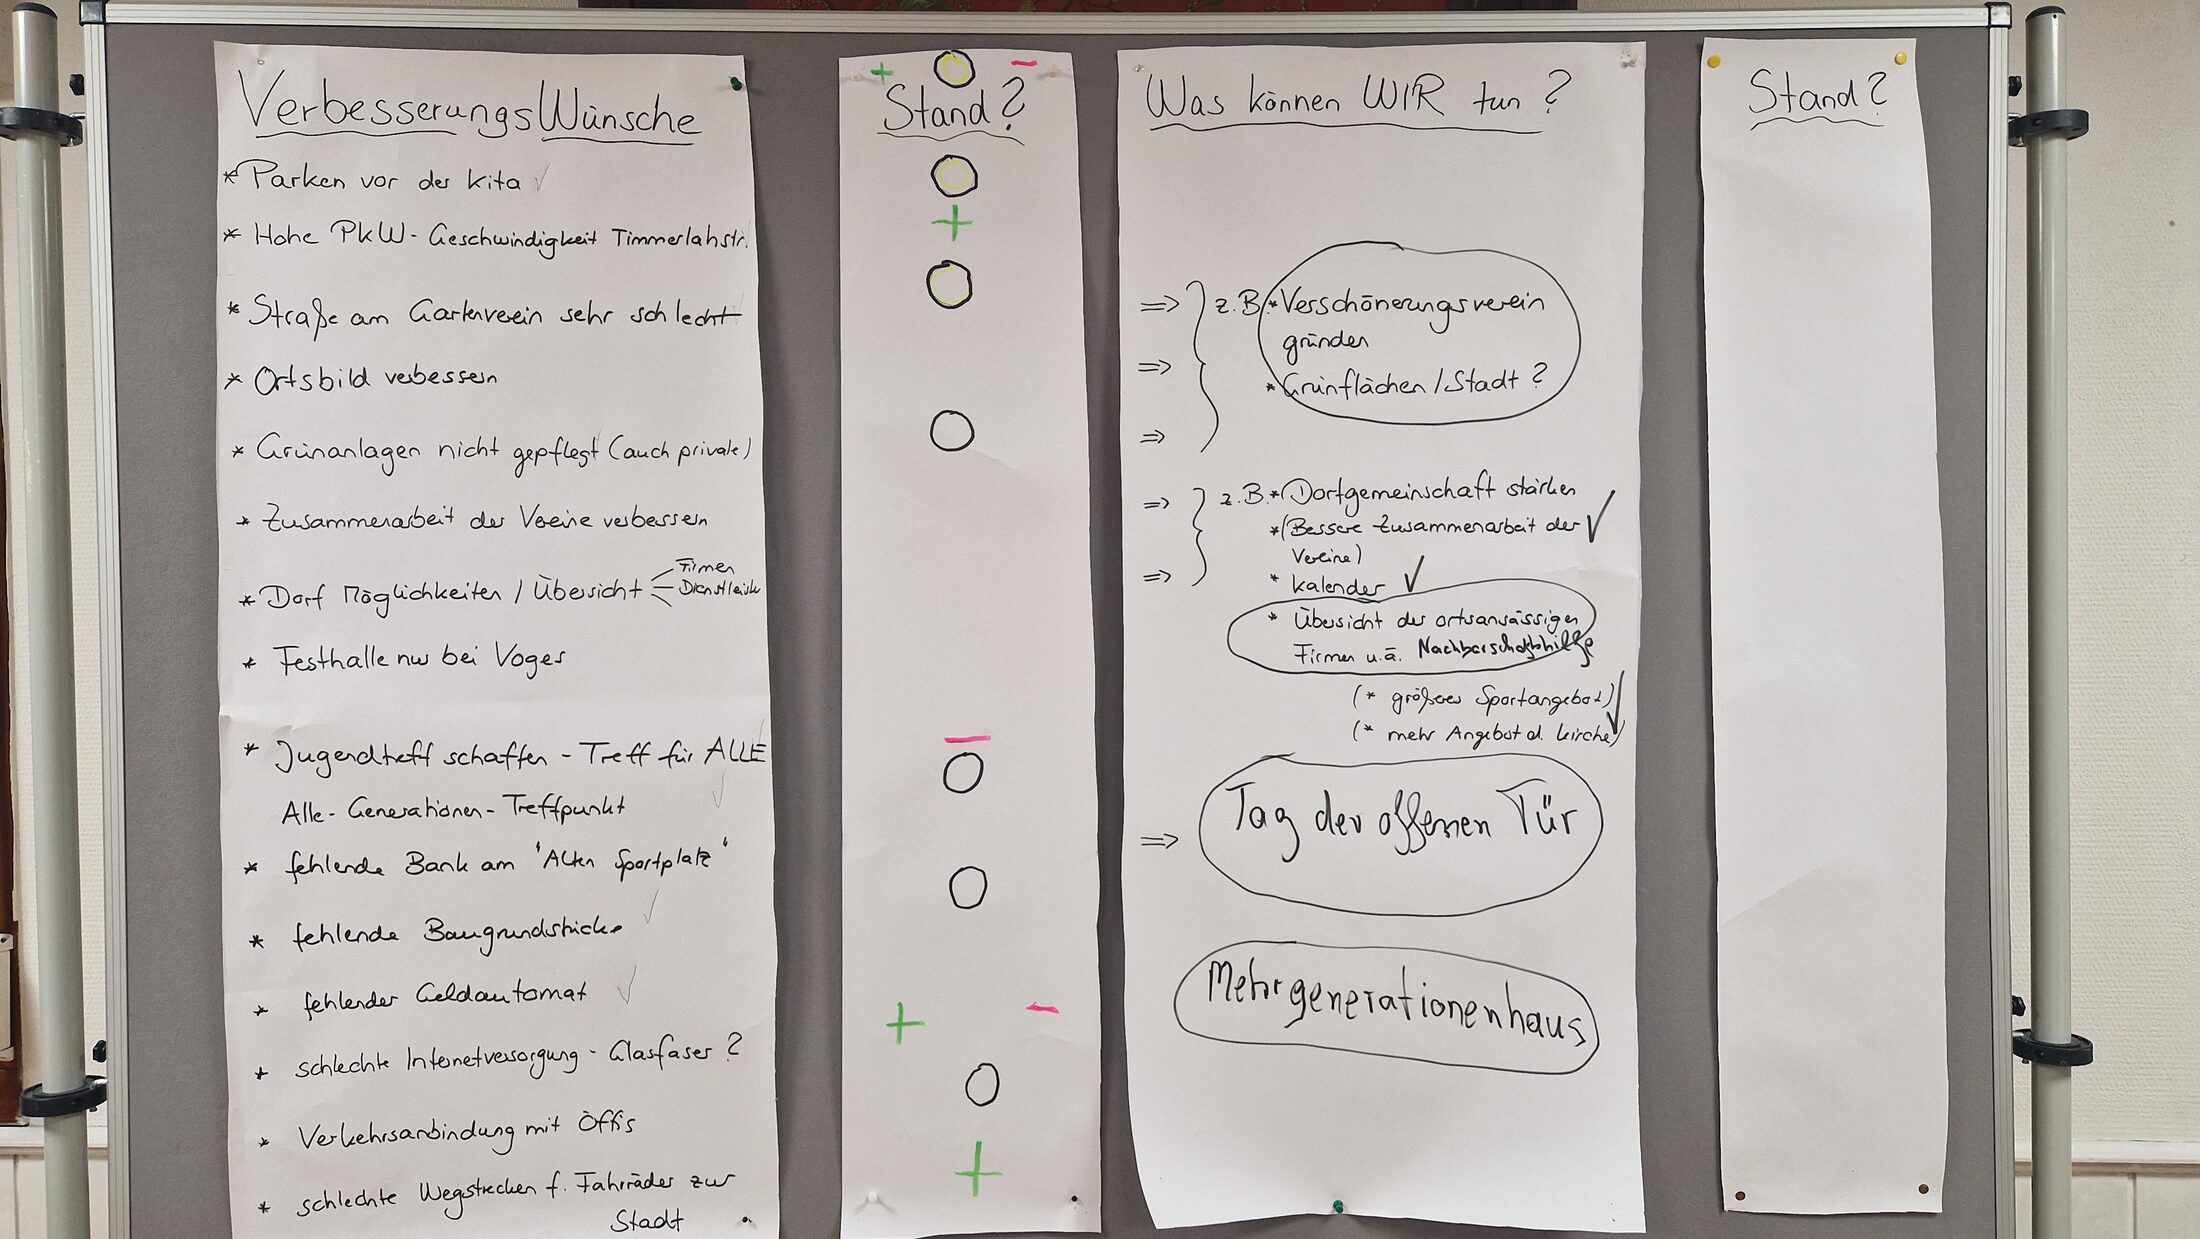 VerbesserungsWünsche
* Parken vor der Kita ✓
* Hohe PKW-Geschwindigkeit Timmerlahstr.
* Straße am Gartenverein sehr schlecht
* Ortsbild verbessern
* Grünanlagen nicht gepflegt (auch private)
* Zusammenarbeit der Vereine verbessern
* Dorf Möglichkeiten / Übersicht
Firmen
* Festhalle nur bei Voges
* Jugendtreff schaffen - Treff für ALLE
Alle-Generationen-Treffpunkt ✓
* fehlende Bank am "Alten Sportplatz"
* fehlende Baugrundstücke ✓
* fehlender Geldautomat ✓
* schlechte Internetversorgung - Glasfaser?
* Verkehrsanbindung mit Öffis
* schlechte Wegstrecken f. Fahrräder zur
Stadt
+ ○ -
Stand?
○
+
○
○
-
○
○
+ -
○
+
Was können WIR tun?
=> z.B. * Verschönerungsverein
gründen
=> * Grünflächen / Stadt?
=>
=> z.B. * Dorfgemeinschaft stärken
* (Bessere Zusammenarbeit der ✓
Vereine)
=> * Kalender ✓
* Übersicht der ortsansässigen
Firmen u.ä. Nachbarschaftshilfe
(* größeres Sportangebot)
(* mehr Angebot d. Kirche) ✓
=> Tag der offenen Tür
Mehrgenerationenhaus
Stand?